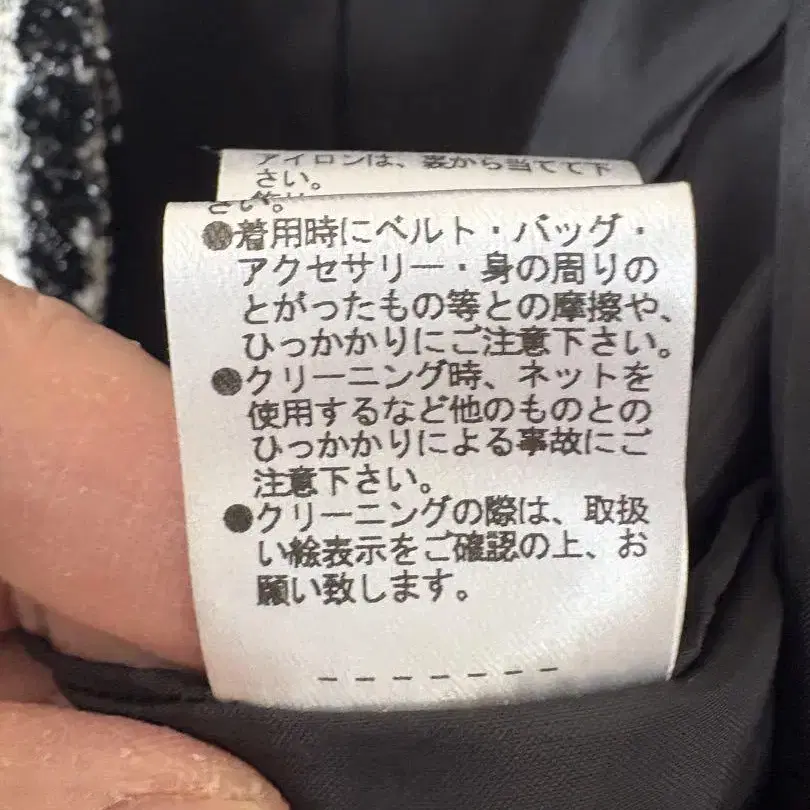 アイロンは、裏から当てて下
さい。
●着用時にベルト・バッグ・
アクセサリー・身の周りの
とがったもの等との摩擦や、
ひっかかりにご注意下さい。
●クリーニング時、ネットを
使用するなど他のものとの
ひっかかりによる事故にご
注意下さい。
●クリーニングの際は、取扱
い絵表示をご確認の上、お
願い致します。
-------